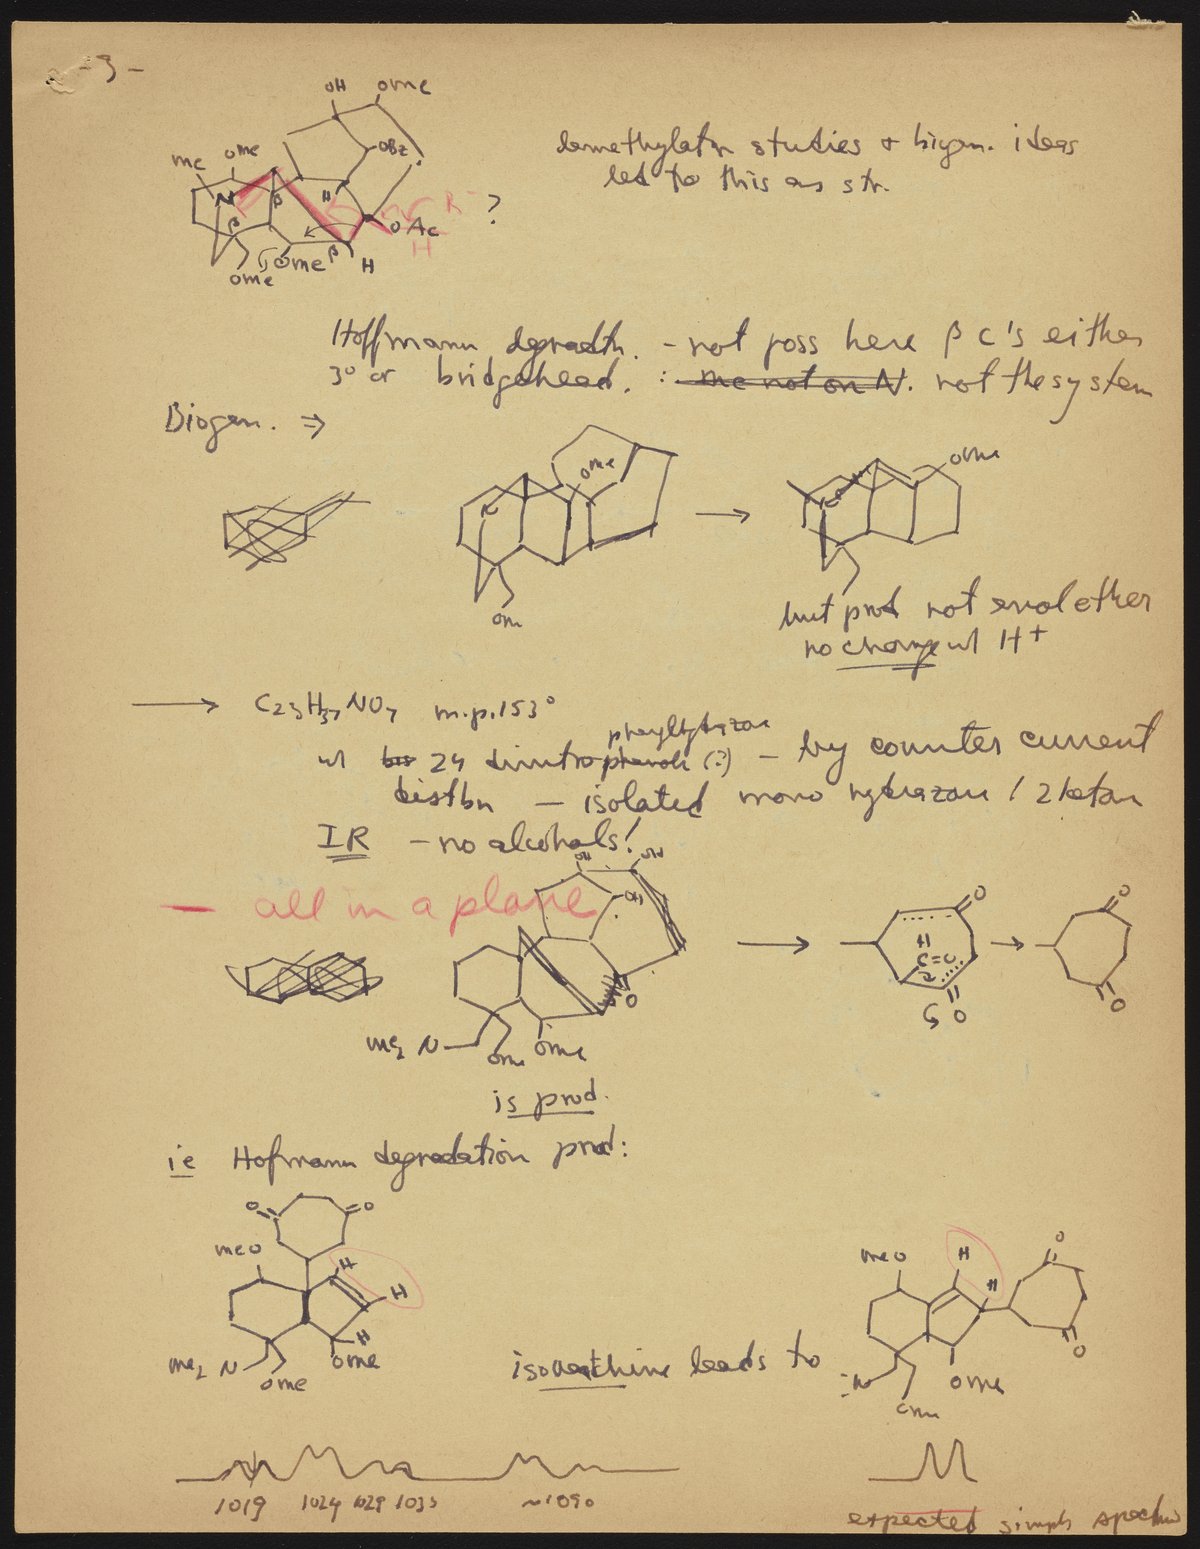 - 3 -
OH OMe
OBz
Me OMe
N
β β H
OAc R
H
?
OMe OMe β H
demethylatn studies + biogen. ideas
led to this as str.
Hoffmann degradtn. - not poss here β C's either
3° or bridgehead. : me not on N. not the system
Biogen. ⇒
OMe
OMe
OMe
but prod not enol ether
no change w H+
→ C23H37NO7 m.p. 153°
phenylhydrazon
w 24 dinitro phenols (?) - by counter current
distbn - isolated mono hydrazone / 2 ketone
IR - no alcohols!
- all in a plane
OH OH
OH
O
Me2 N OMe OMe
O
H
C=O
O
O
O
is prod.
ie Hofmann degradation prod:
O O
MeO H
H
H
OMe
Me2 N
OMe
leads to
MeO H
H
O
O
N OMe
OMe
1019 1024 1029 1035 ~1090
expected simple